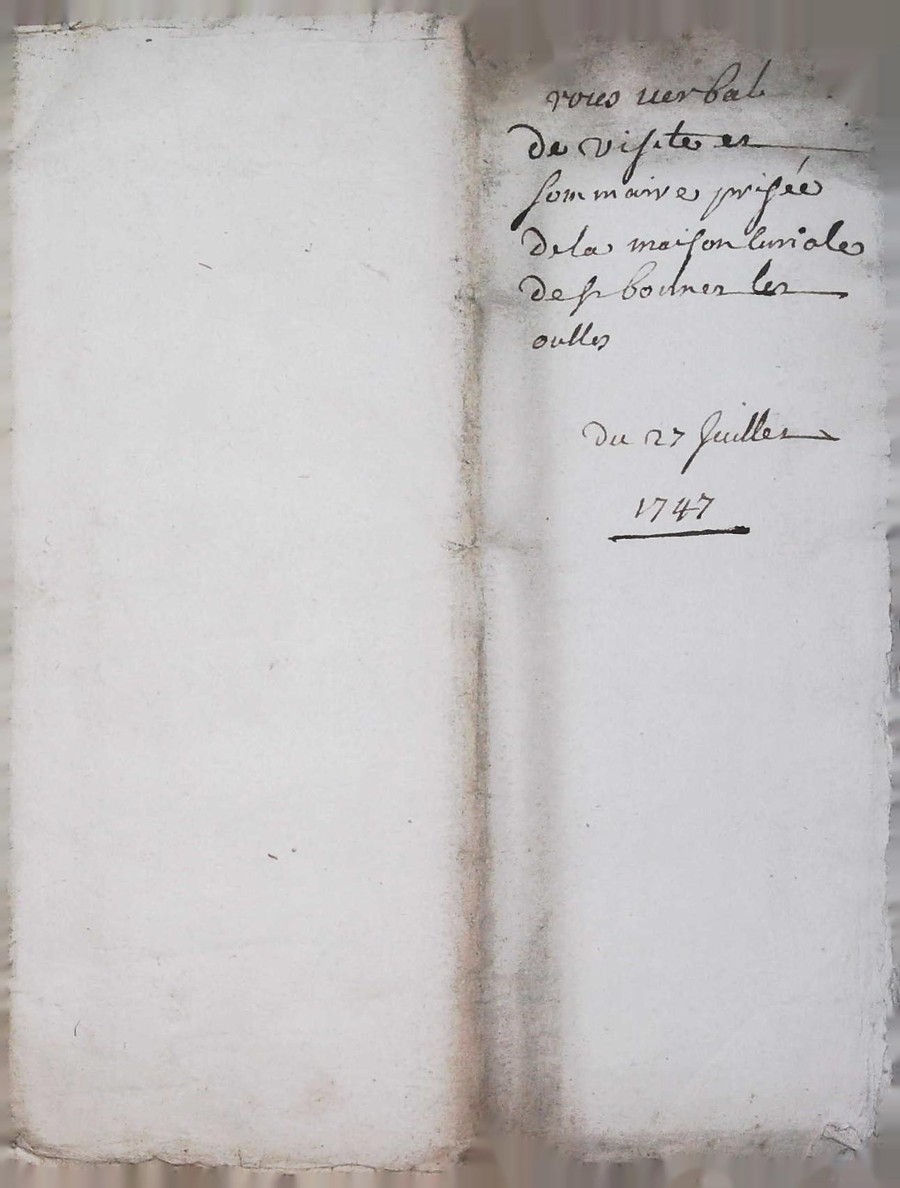 roces verbal
de visite et
sommaire prisée
de la maison curiale
de st bonnet les
oulles
du 27 Juillet
1747